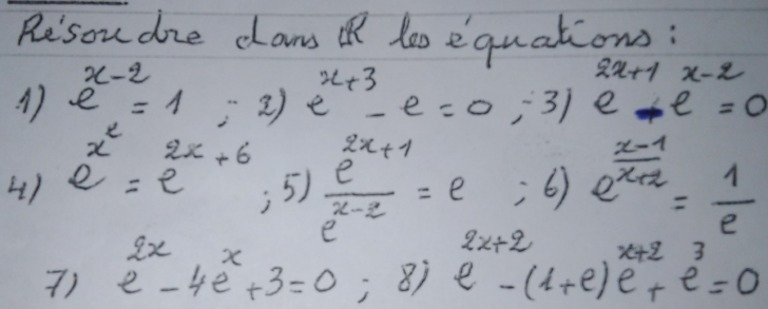 Résoudre dans ℝ les équations :
1) e^{x-2} = 1 ; 2) e^{x+3} - e = 0 ; 3) e^{2x+1} - e^{x-2} = 0
4) e^{x^2} = e^{2x+6} ; 5) \frac{e^{2x+1}}{e^{x-2}} = e ; 6) e^{\frac{x-1}{x+2}} = \frac{1}{e}
7) e^{2x} - 4e^{x} + 3 = 0 ; 8) e^{2x+2} - (1+e)e^{x+2} + e^{3} = 0